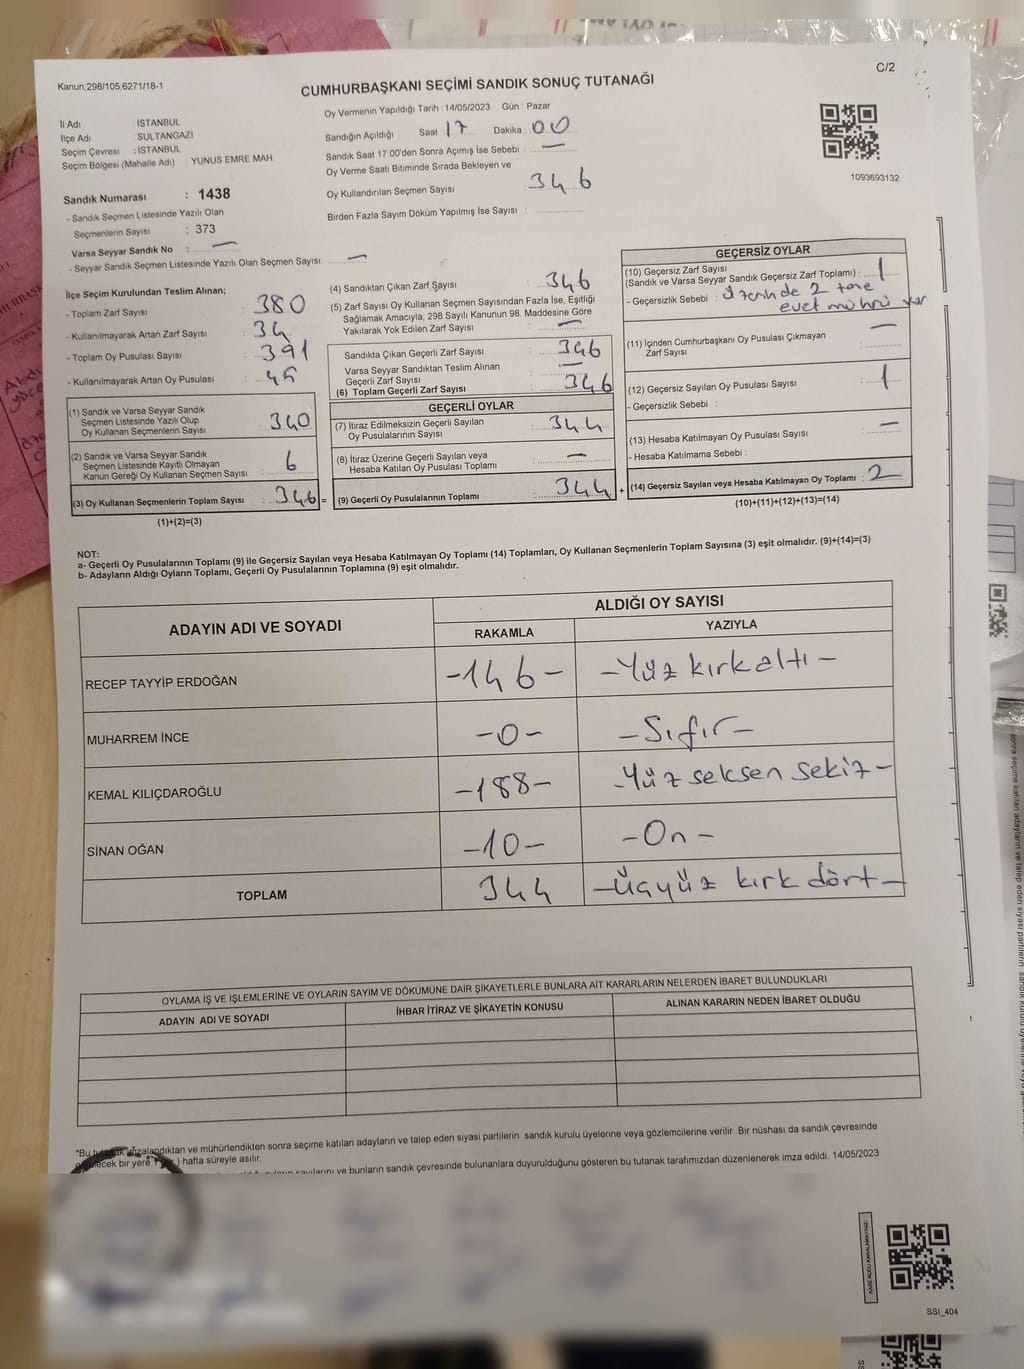 Kanun;298/105,6271/18-1
C/2
CUMHURBAŞKANI SEÇİMİ SANDIK SONUÇ TUTANAĞI
İl Adı : İSTANBUL
İlçe Adı : SULTANGAZİ
Seçim Çevresi : İSTANBUL
Seçim Bölgesi (Mahalle Adı) YUNUS EMRE MAH
Sandık Numarası : 1438
- Sandık Seçmen Listesinde Yazılı Olan
Seçmenlerin Sayısı : 373
Varsa Seyyar Sandık No : —
- Seyyar Sandık Seçmen Listesinde Yazılı Olan Seçmen Sayısı: —
Oy Vermenin Yapıldığı Tarih : 14/05/2023 Gün : Pazar
Sandığın Açıldığı Saat 17 Dakika 00
Sandık Saat 17:00'den Sonra Açımış İse Sebebi : —
Oy Verme Saati Bitiminde Sırada Bekleyen ve
Oy Kullandırılan Seçmen Sayısı : 346
Birden Fazla Sayım Döküm Yapılmış İse Sayısı :
1093693132
İlçe Seçim Kurulundan Teslim Alınan;
- Toplam Zarf Sayısı : 380
- Kullanılmayarak Artan Zarf Sayısı : 34
- Toplam Oy Pusulası Sayısı : 391
- Kullanılmayarak Artan Oy Pusulası : 45
(1) Sandık ve Varsa Seyyar Sandık
Seçmen Listesinde Yazılı Olup
Oy Kullanan Seçmenlerin Sayısı : 340
(2) Sandık ve Varsa Seyyar Sandık
Seçmen Listesinde Kayıtlı Olmayan
Kanun Gereği Oy Kullanan Seçmen Sayısı : 6
(3) Oy Kullanan Seçmenlerin Toplam Sayısı : 346 =
(1)+(2)=(3)
(4) Sandıktan Çıkan Zarf Sayısı : 346
(5) Zarf Sayısı Oy Kullanan Seçmen Sayısından Fazla İse, Eşitliği
Sağlamak Amacıyla; 298 Sayılı Kanunun 98. Maddesine Göre
Yakılarak Yok Edilen Zarf Sayısı : —
Sandıkta Çıkan Geçerli Zarf Sayısı : 346
Varsa Seyyar Sandıktan Teslim Alınan
Geçerli Zarf Sayısı : —
(6) Toplam Geçerli Zarf Sayısı : 346
GEÇERLİ OYLAR
(7) İtiraz Edilmeksizin Geçerli Sayılan
Oy Pusulalarının Sayısı : 344
(8) İtiraz Üzerine Geçerli Sayılan veya
Hesaba Katılan Oy Pusulası Toplamı : —
(9) Geçerli Oy Pusulalarının Toplamı : 344 +
GEÇERSİZ OYLAR
(10) Geçersiz Zarf Sayısı
(Sandık ve Varsa Seyyar Sandık Geçersiz Zarf Toplamı) : 1
- Geçersizlik Sebebi : Üzerinde 2 tane
evet mührü var
(11) İçinden Cumhurbaşkanı Oy Pusulası Çıkmayan
Zarf Sayısı : —
(12) Geçersiz Sayılan Oy Pusulası Sayısı : 1
- Geçersizlik Sebebi :
(13) Hesaba Katılmayan Oy Pusulası Sayısı : —
- Hesaba Katılmama Sebebi :
(14) Geçersiz Sayılan veya Hesaba Katılmayan Oy Toplamı : 2
(10)+(11)+(12)+(13)=(14)
NOT:
a- Geçerli Oy Pusulalarının Toplamı (9) ile Geçersiz Sayılan veya Hesaba Katılmayan Oy Toplamı (14) Toplamları, Oy Kullanan Seçmenlerin Toplam Sayısına (3) eşit olmalıdır. (9)+(14)=(3)
b- Adayların Aldığı Oyların Toplamı, Geçerli Oy Pusulalarının Toplamına (9) eşit olmalıdır.
ADAYIN ADI VE SOYADI
ALDIĞI OY SAYISI
RAKAMLA YAZIYLA
RECEP TAYYİP ERDOĞAN -146- -Yüz kırkaltı-
MUHARREM İNCE -0- -Sıfır-
KEMAL KILIÇDAROĞLU -188- -Yüz seksen sekiz-
SİNAN OĞAN -10- -On-
TOPLAM 344 -Üçyüz kırk dört-
OYLAMA İŞ VE İŞLEMLERİNE VE OYLARIN SAYIM VE DÖKÜMÜNE DAİR ŞİKAYETLERLE BUNLARA AİT KARARLARIN NELERDEN İBARET BULUNDUKLARI
ADAYIN ADI VE SOYADI İHBAR İTİRAZ VE ŞİKAYETİN KONUSU ALINAN KARARIN NEDEN İBARET OLDUĞU
*Bu imzalandıktan ve mühürlendikten sonra seçime katılan adayların ve talep eden siyasi partilerin sandık kurulu üyelerine veya gözlemcilerine verilir. Bir nüshası da sandık çevresinde
bir yere hafta süreyle asılır.
sayılarını ve bunların sandık çevresinde bulunanlara duyurulduğunu gösteren bu tutanak tarafımızdan düzenlenerek imza edildi. 14/05/2023
KARE KODU KARALAMAYINIZ!
SSI_404